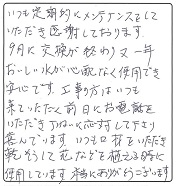 いつも定期的にメンテナンスをして
いただき感謝しております。
9月に交換が終わり又一年
おいしい水が心配なく使用でき
安心です。工事の方はいつも
来ていただく前日にお電話を
いただき丁ねいに応対して下さり
喜んでいます。いつも口材をいただき
乾そうして花などを植える時に
使用しています。本当にありがとうございます